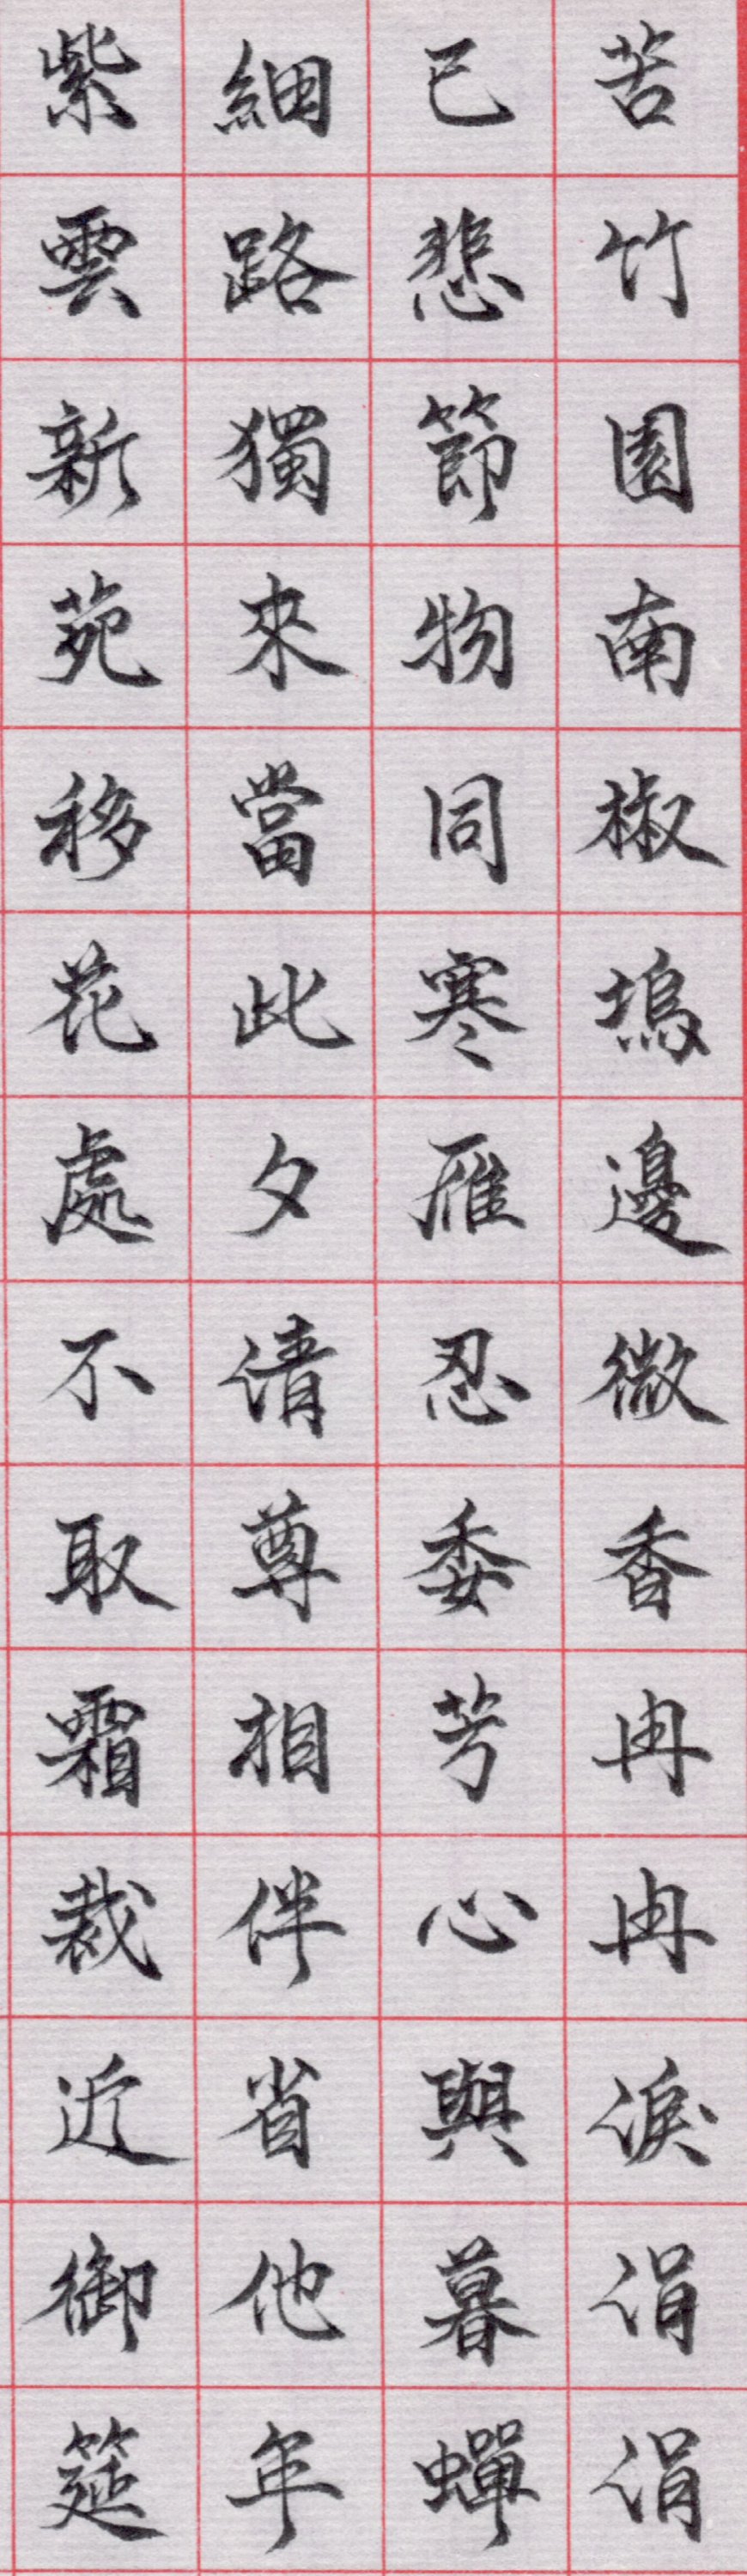 苦竹園南椒塢邊微香冉冉淚涓涓
已悲節物同寒雁忍委芳心與暮蟬
細路獨來當此夕清尊相伴省他年
紫雲新苑移花處不取霜裁近御筵